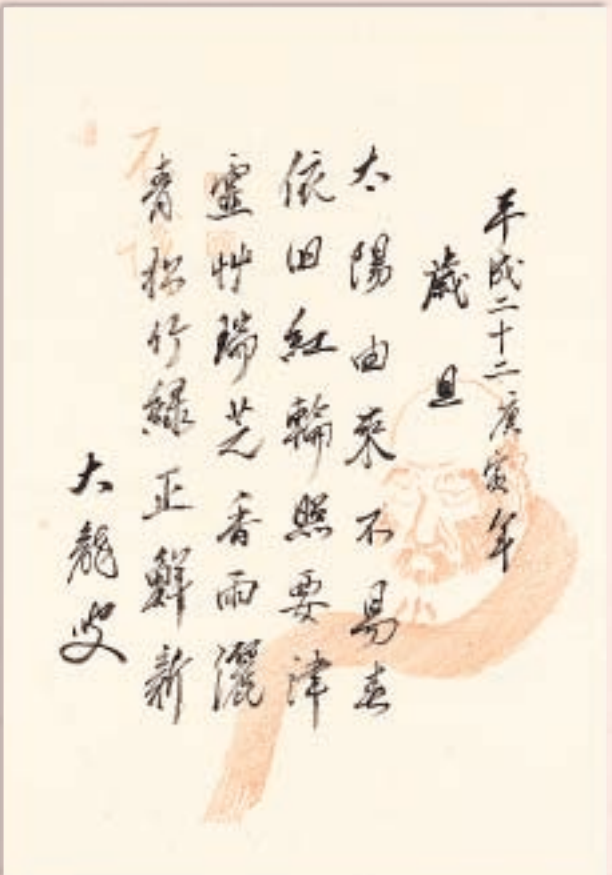 平成二十二庚寅年
歳旦
太陽由来不易春
依旧紅輪照要津
靈艸瑞芝香雨灑
青松竹緑正鮮新
大龍叟